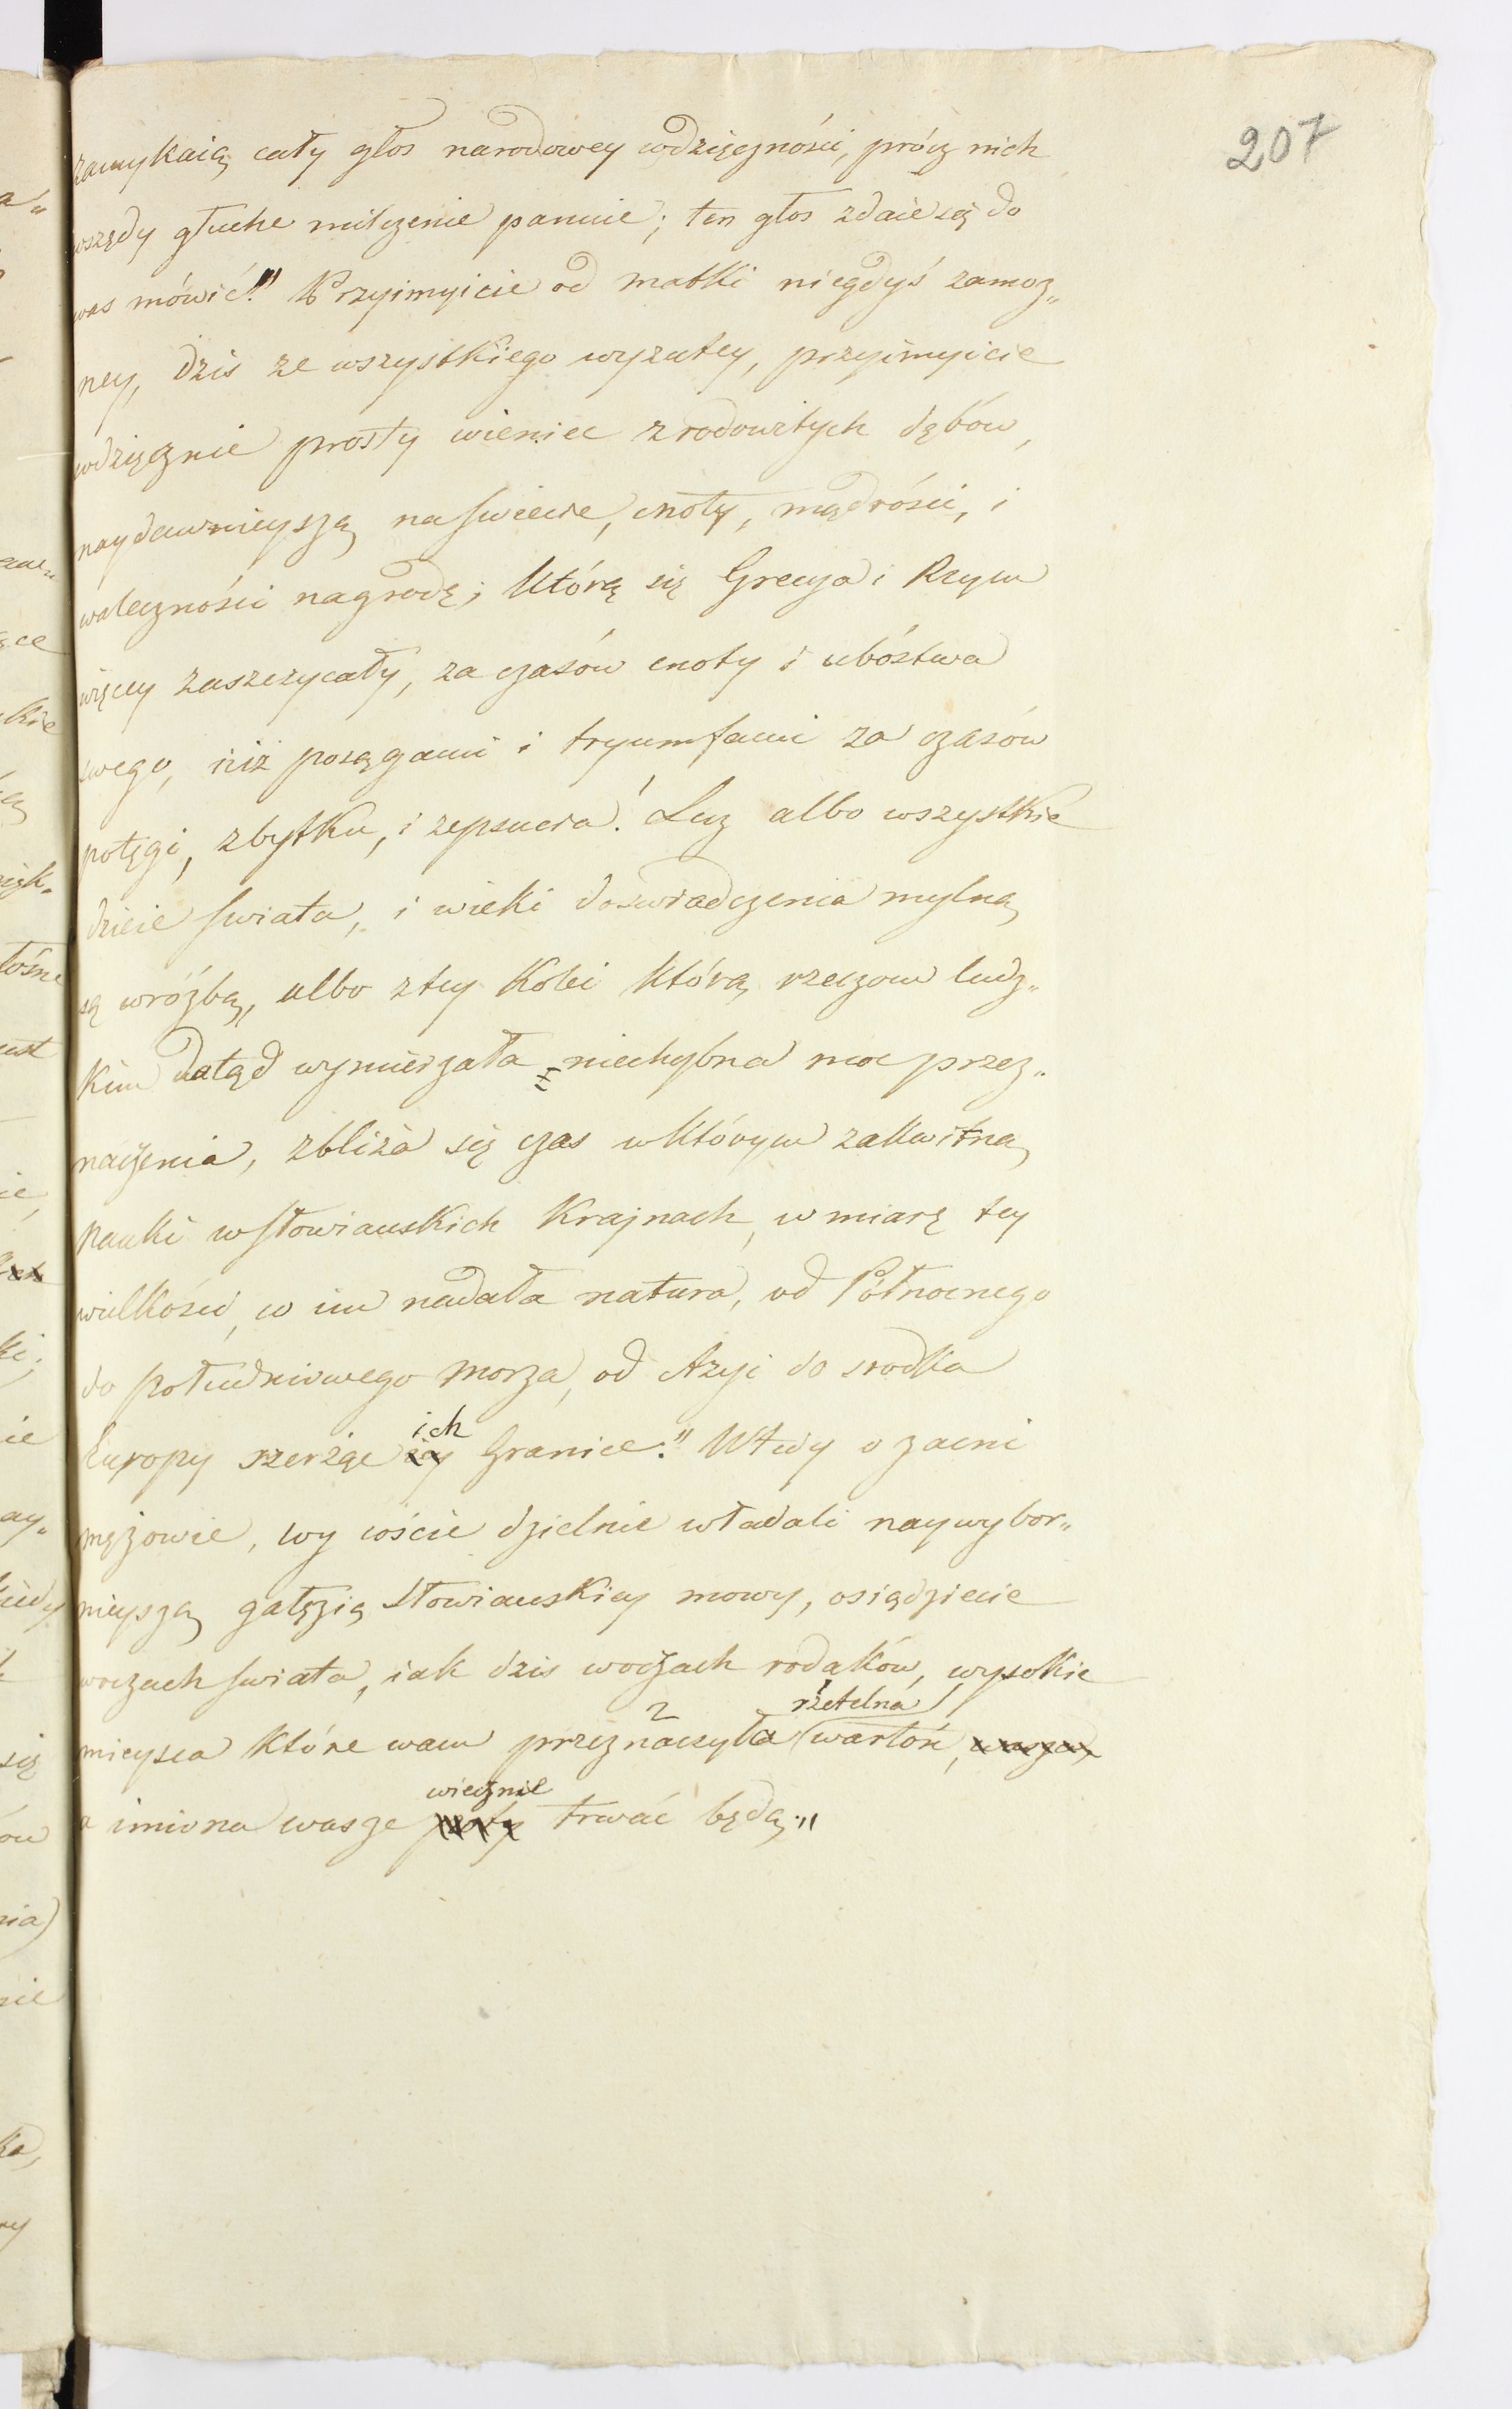 207
zamykaią cały głos narodowey wdzięcznósci, prócz nich
wszędy głuche milczenie panuie; ten głos zdaie się do
was mówić!" Przyimyicie od matki niegdyś zamoż„
ney, dzis ze wszystkiego wyzutey, przyimyicie
wdzięcznie prosty wieniec z rodowitych dębów,
naydawnieyszą na swiecie, cnoty, mądrósci, i
walecznósci nagrodę; którą się Grecya i Rzym
więcey zaszczycały, za czasów cnoty i ubóstwa
swego, niż posągami i tryumfami za czasów
potęgi, zbytku, i zepsucia! Lecz albo wszystkie
dzieie swiata, i wieki doswiadczenia mylną
są wróżbą, albo z tey kolei którą rzeczom ludz„
kim dotąd wymierzała niechybna moc prze„
naczenia, zbliża się czas w którym zakwitną
nauki w słowianskich krajnach, w miarę tey
wielkósci, co im nadała natura, od Północnego
do południowego morza, od Azyi do srodka
Europy szerząc ich Granice." Wtedy o zacni
mężowie, wy coście dzielnie władali naywybor„
nieyszą gałęzią Słowianskiey mowy, osiądziecie
w oczach swiata, iak dzis w oczach rodaków, wysokie
mieysca które wam przeznaczyła rzetelna wartóść,
a imiona wasze wiecznie trwać będą."